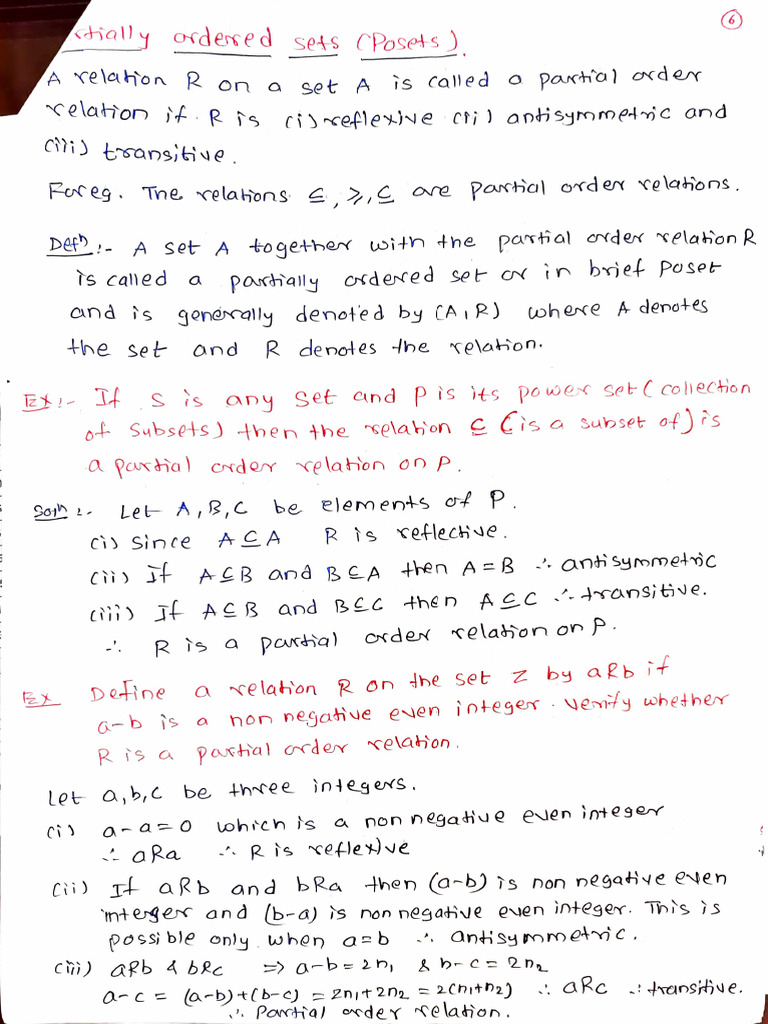 6
rtially ordered sets (Posets).
A relation R on a set A is called a partial order
relation if R is (i) reflexive (ii) antisymmetric and
(iii) transitive.
For eg. The relations ≤, ≥, ⊆ are partial order relations.
Defn :- A set A together with the partial order relation R
is called a partially ordered set or in brief Poset
and is generally denoted by (A, R) where A denotes
the set and R denotes the relation.
Ex :- If S is any set and P is its power set (collection
of subsets) then the relation ⊆ (is a subset of) is
a partial order relation on P.
Soln :- Let A, B, C be elements of P.
(i) Since A ⊆ A R is reflective.
(ii) If A ⊆ B and B ⊆ A then A = B ∴ antisymmetric
(iii) If A ⊆ B and B ⊆ C then A ⊆ C ∴ transitive.
∴ R is a partial order relation on P.
Ex Define a relation R on the set Z by aRb if
a-b is a non negative even integer. Verify whether
R is a partial order relation.
Let a, b, c be three integers.
(i) a-a=0 which is a non negative even integer
∴ aRa ∴ R is reflexive
(ii) If aRb and bRa then (a-b) is non negative even
integer and (b-a) is non negative even integer. This is
possible only when a=b ∴ antisymmetric.
(iii) aRb & bRc ⇒ a-b = 2n₁ & b-c = 2n₂
a-c = (a-b)+(b-c) = 2n₁+2n₂ = 2(n₁+n₂) ∴ aRc ∴ transitive.
∴ Partial order relation.